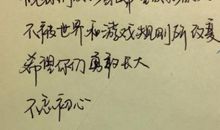 不被世界和游戏规则所改变
希望你们勇敢长大
不忘初心